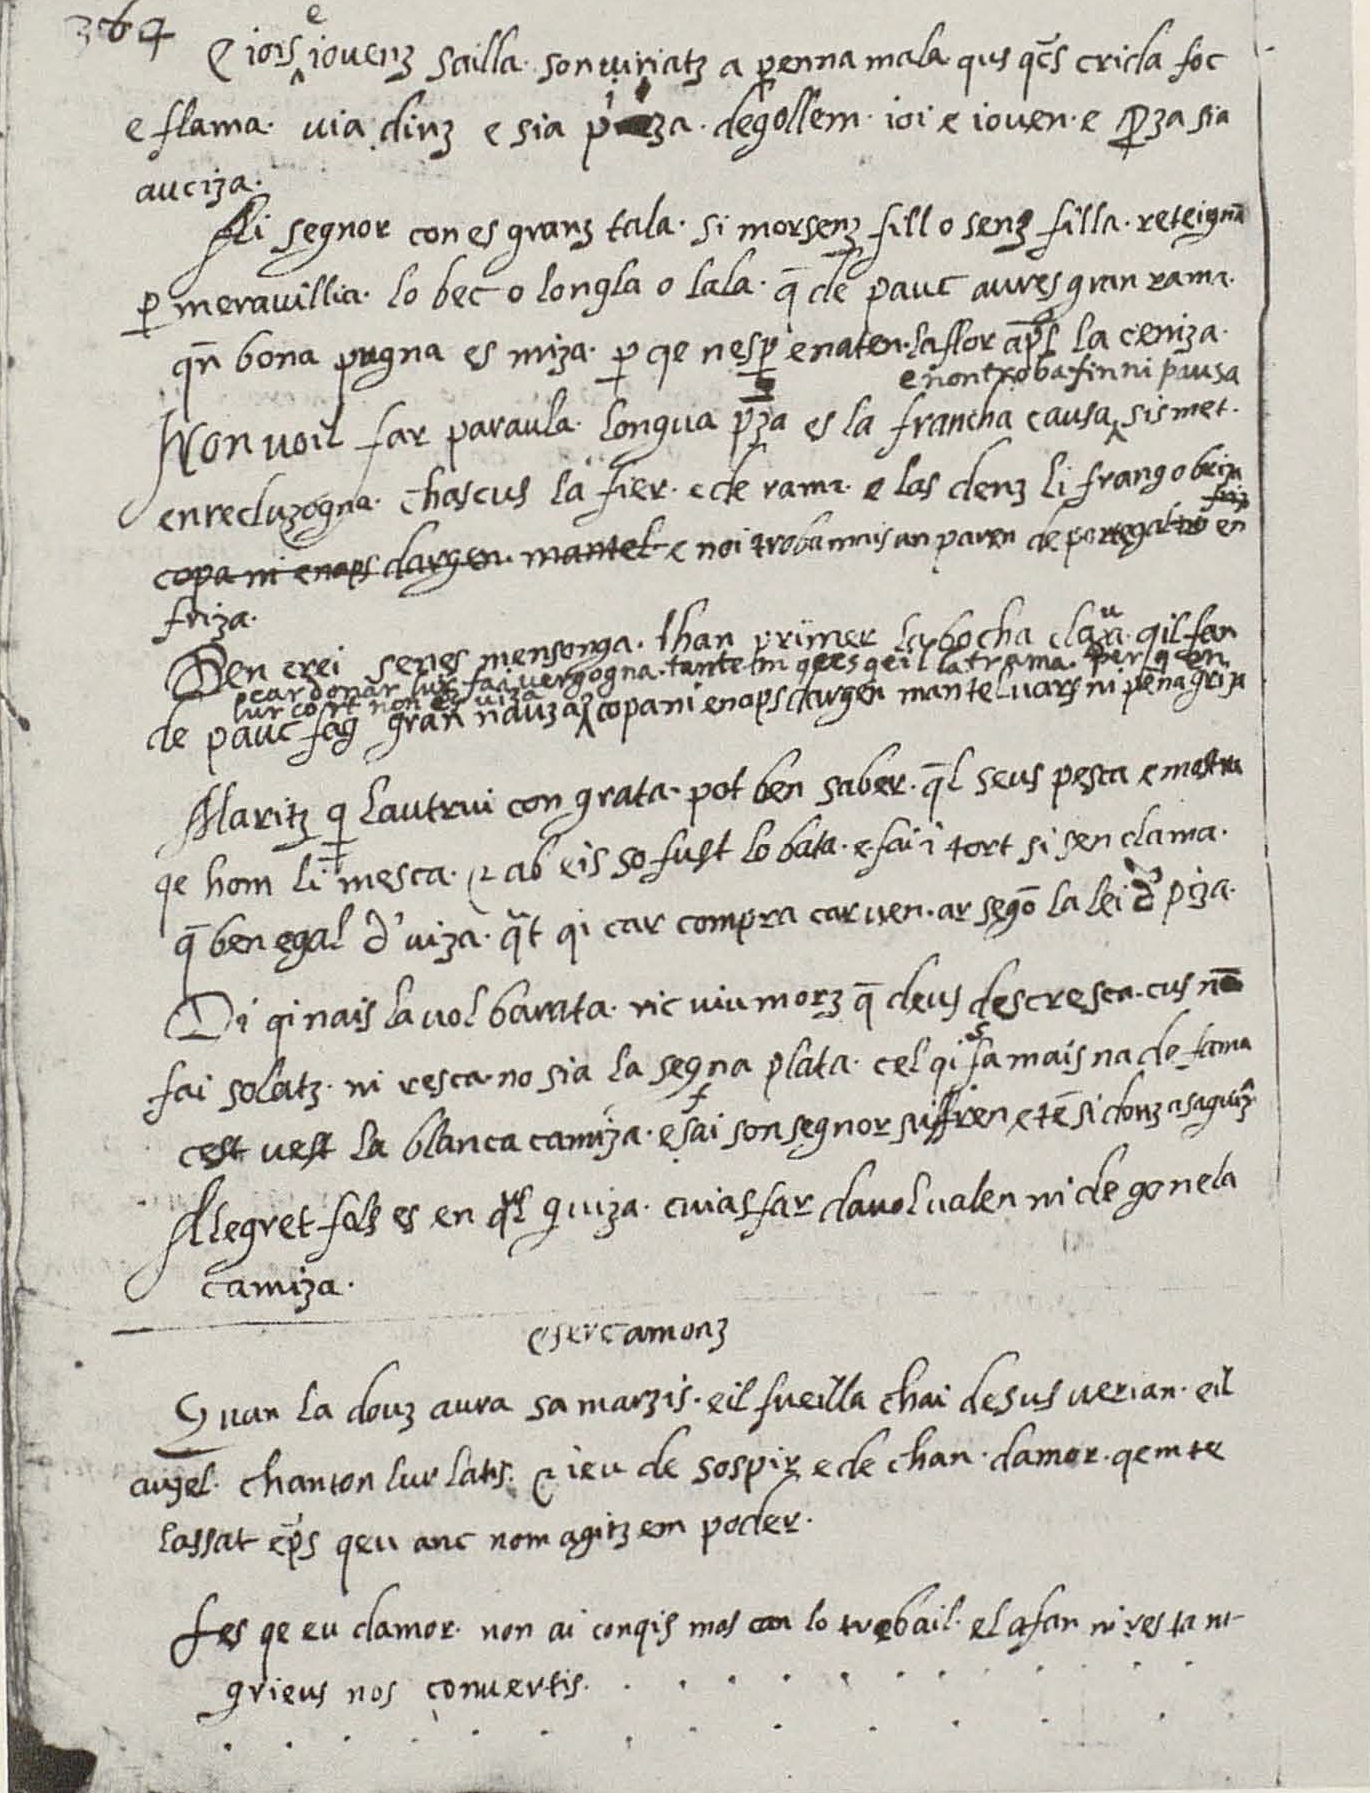 364
E iois e iouenz sailla. son uiriatz a penna mala. qus qc̄s crida foc
e flama. via dinz e sia p za. degollem. ioi e iouen. e p̄za sia
auciza.
Ai segnor con es granz tala. si morsenz fill o senz filla. reteignā
p meravillia. lo bec o longla o lala. q̄ de pauc aures gran rama.
qn̄ bona pugna es miza. p qe nesp enaten. la flor ap̄s la ceniza.
e non troba fin ni pausa
Non voil far paraula. longua p̄za es la francha causa sismet.
en recluzogna. chascus la fier. e de rama. e las denz li frang o briza
copa ni enaps dargen. mantel. e noi troba mais un paren de en
friza.
Den crei senes mensonga. lhan primer la bocha claua. qil fan
car donar lur fai vergogna. tante m qe es qeil la trama. per q en
lur cort non es viza
de pauc fag gran nauza copa ni enaps dargen mantel uars ni pena griza
Maritz q lautrui con grata. pot ben saber. q̄l seus pesca e mostra
qe hom li mesca. et ab eis so fust lo bata. e fai i tort si sen clama.
q̄ ben egal d' uiza. q̄t qi car compra car uen. ar segō la lei d' piza.
Di qi nais la uol barata. ric uiu morz q̄ deus descresca. cus nō
fai solatz. ni resca. no sia la segna plata. cel qi s fa mais na de fama
cest uest la blanca camiza. e fai son segnor suffren e tē si donz a sa guiz
Allegret folz es en q̄l guiza. cuias far dauol ualen ni de gonela
camiza.
Cercamonz
Quan la douz aura sa marzis. eil fueilla chai desus uerian. eil
auzel. chanton lur latis. et ieu de sospir e de chan. damor. qem te
lassat ep̄s qeu anc nom agitz em poder.
Fes qe eu damor. non ai conqis mas can lo trebail. el afan ni res tant
grieus nos conuertis.